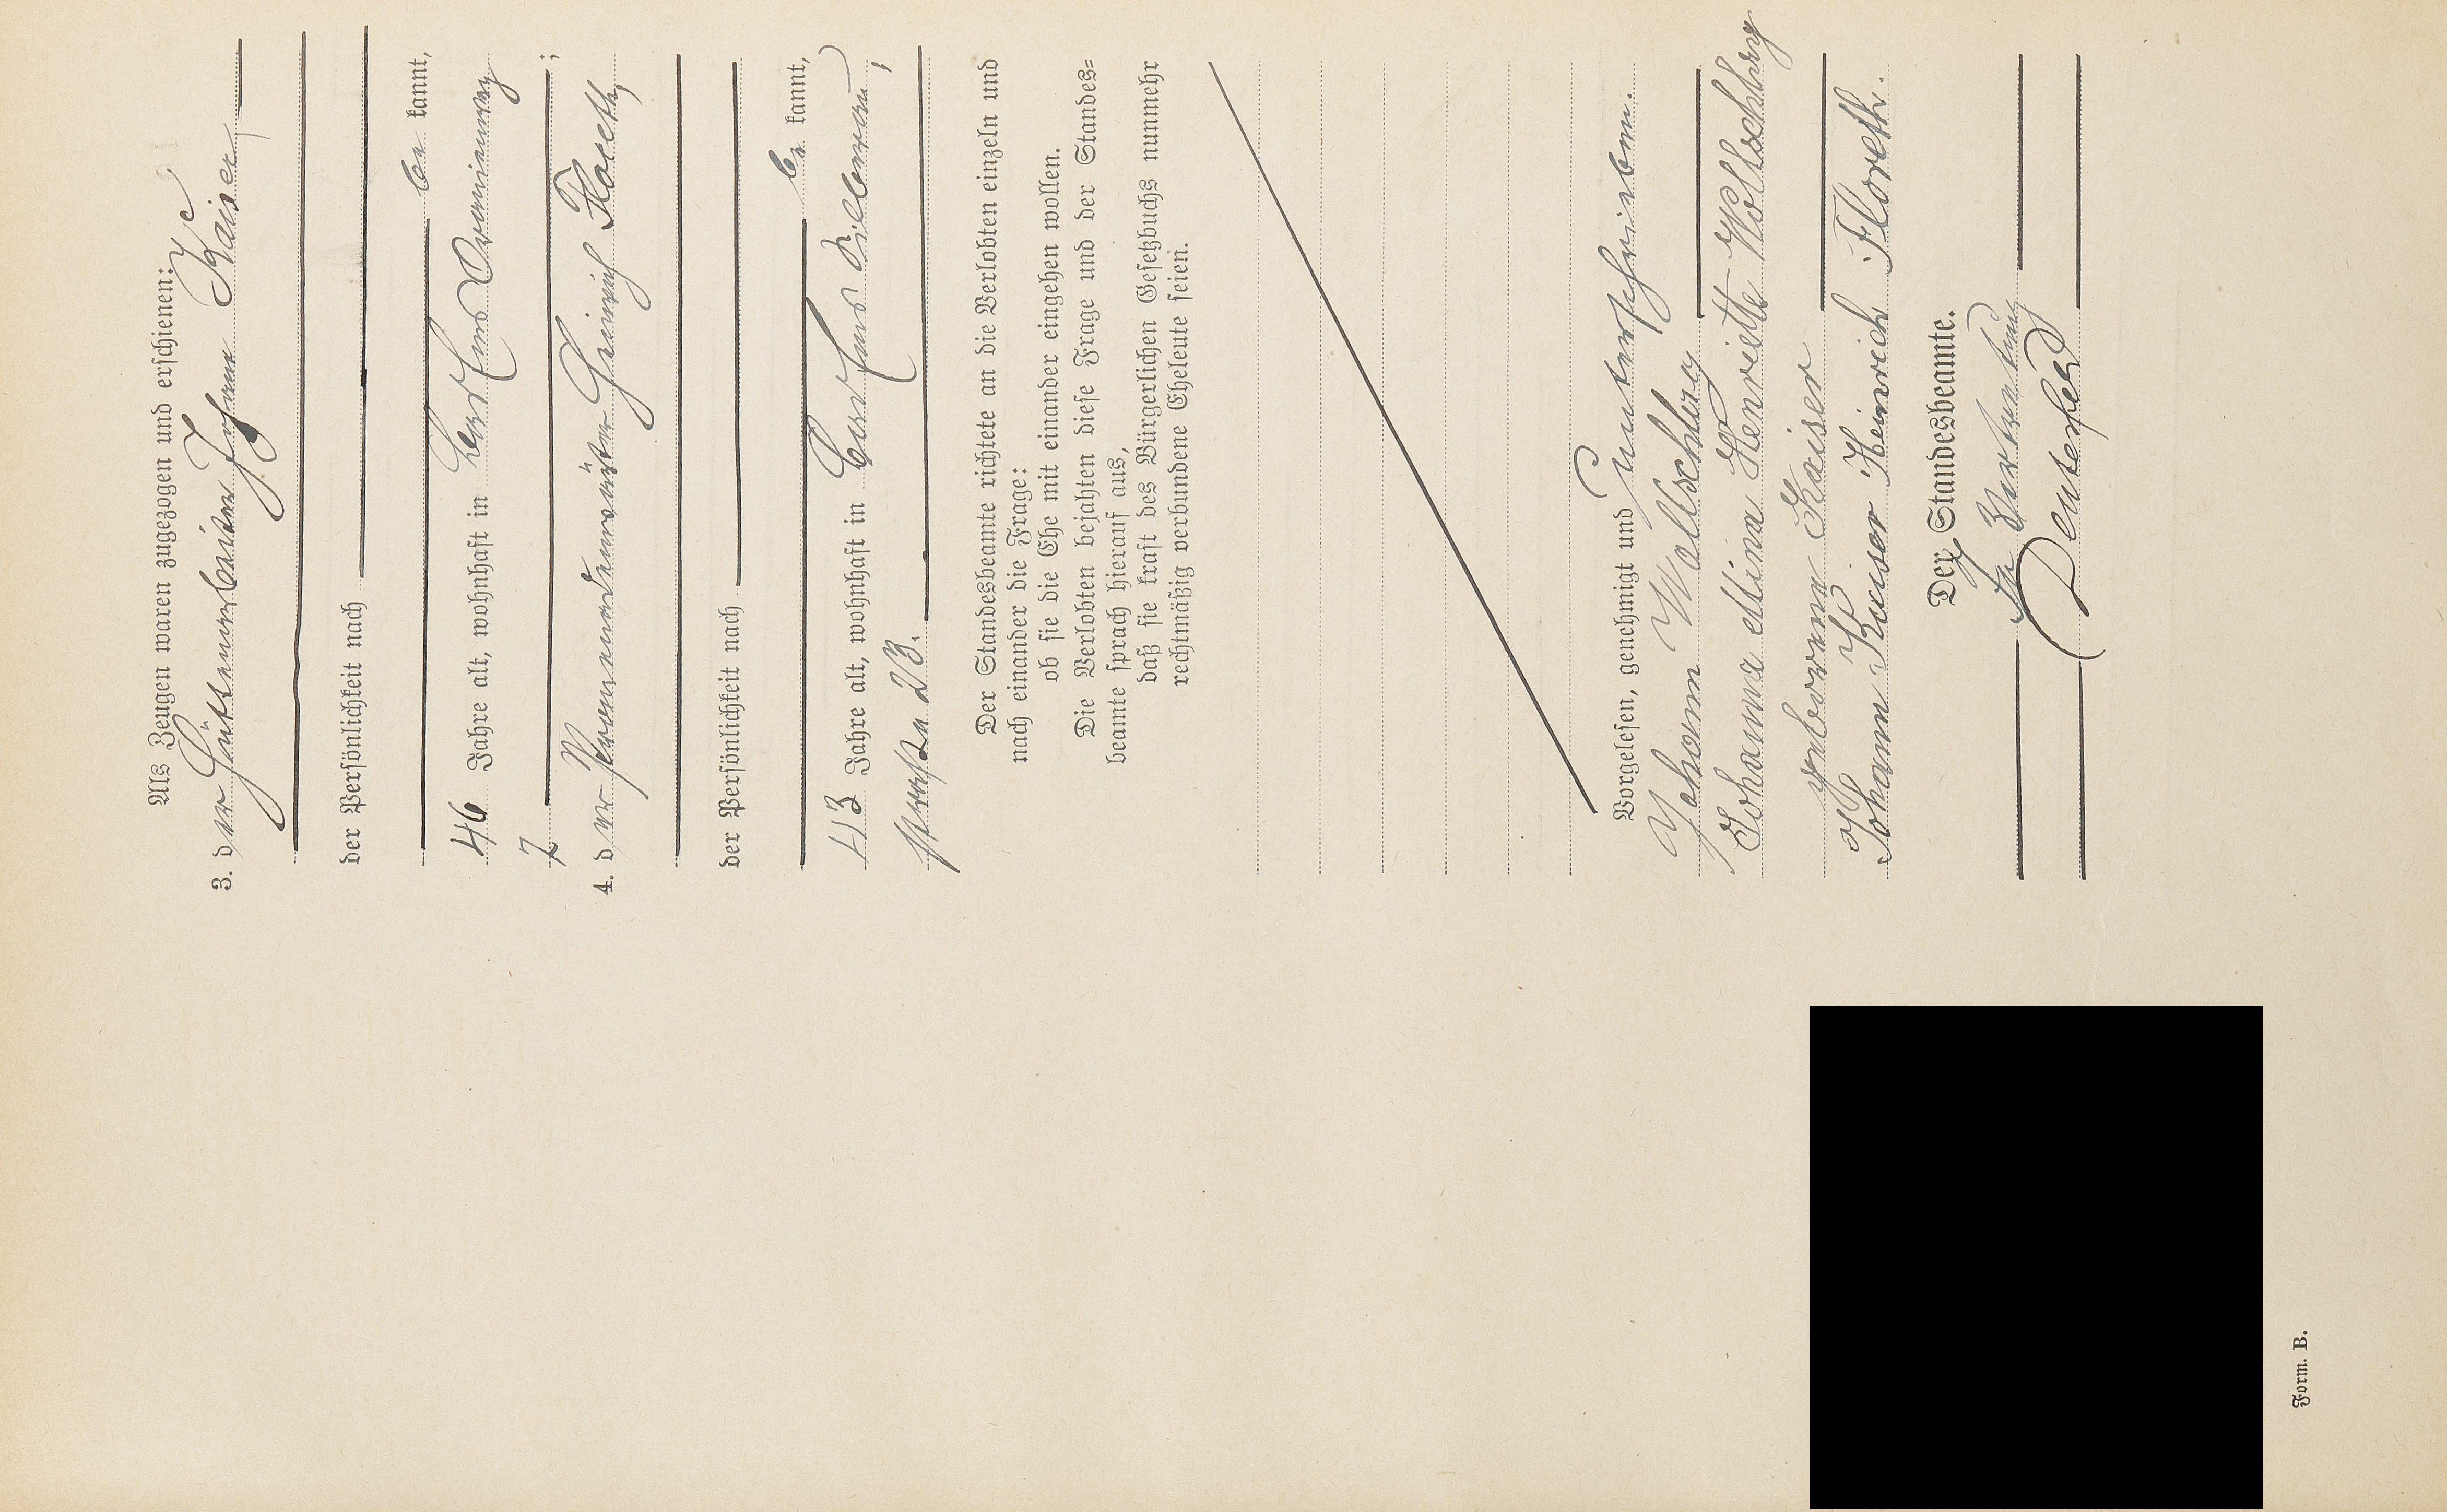 Als Zeugen waren zugezogen und erschienen:
3. der Hüttenarbeiter Johann Kaiser,
der Persönlichkeit nach
be kannt,
46 Jahre alt, wohnhaft in Bad Ems
7 ;
4. der Promenadenwärter Heinrich Floreth,
der Persönlichkeit nach
be kannt,
43 Jahre alt, wohnhaft in Bad Ems
straße 23.
Der Standesbeamte richtete an die Verlobten einzeln und
nach einander die Frage:
ob sie die Ehe mit einander eingehen wollen.
Die Verlobten bejahten diese Frage und der Standes=
beamte sprach hierauf aus,
daß sie kraft des Bürgerlichen Gesetzbuchs nunmehr
rechtmäßig verbundene Eheleute seien.
Vorgelesen, genehmigt und unterschrieben.
Johann Wollschberg
Johanna Henriette Wollschberg
geborene Kaiser
Johann Kaiser Heinrich Floreth.
Der Standesbeamte.
In Vertretung
Form. B.